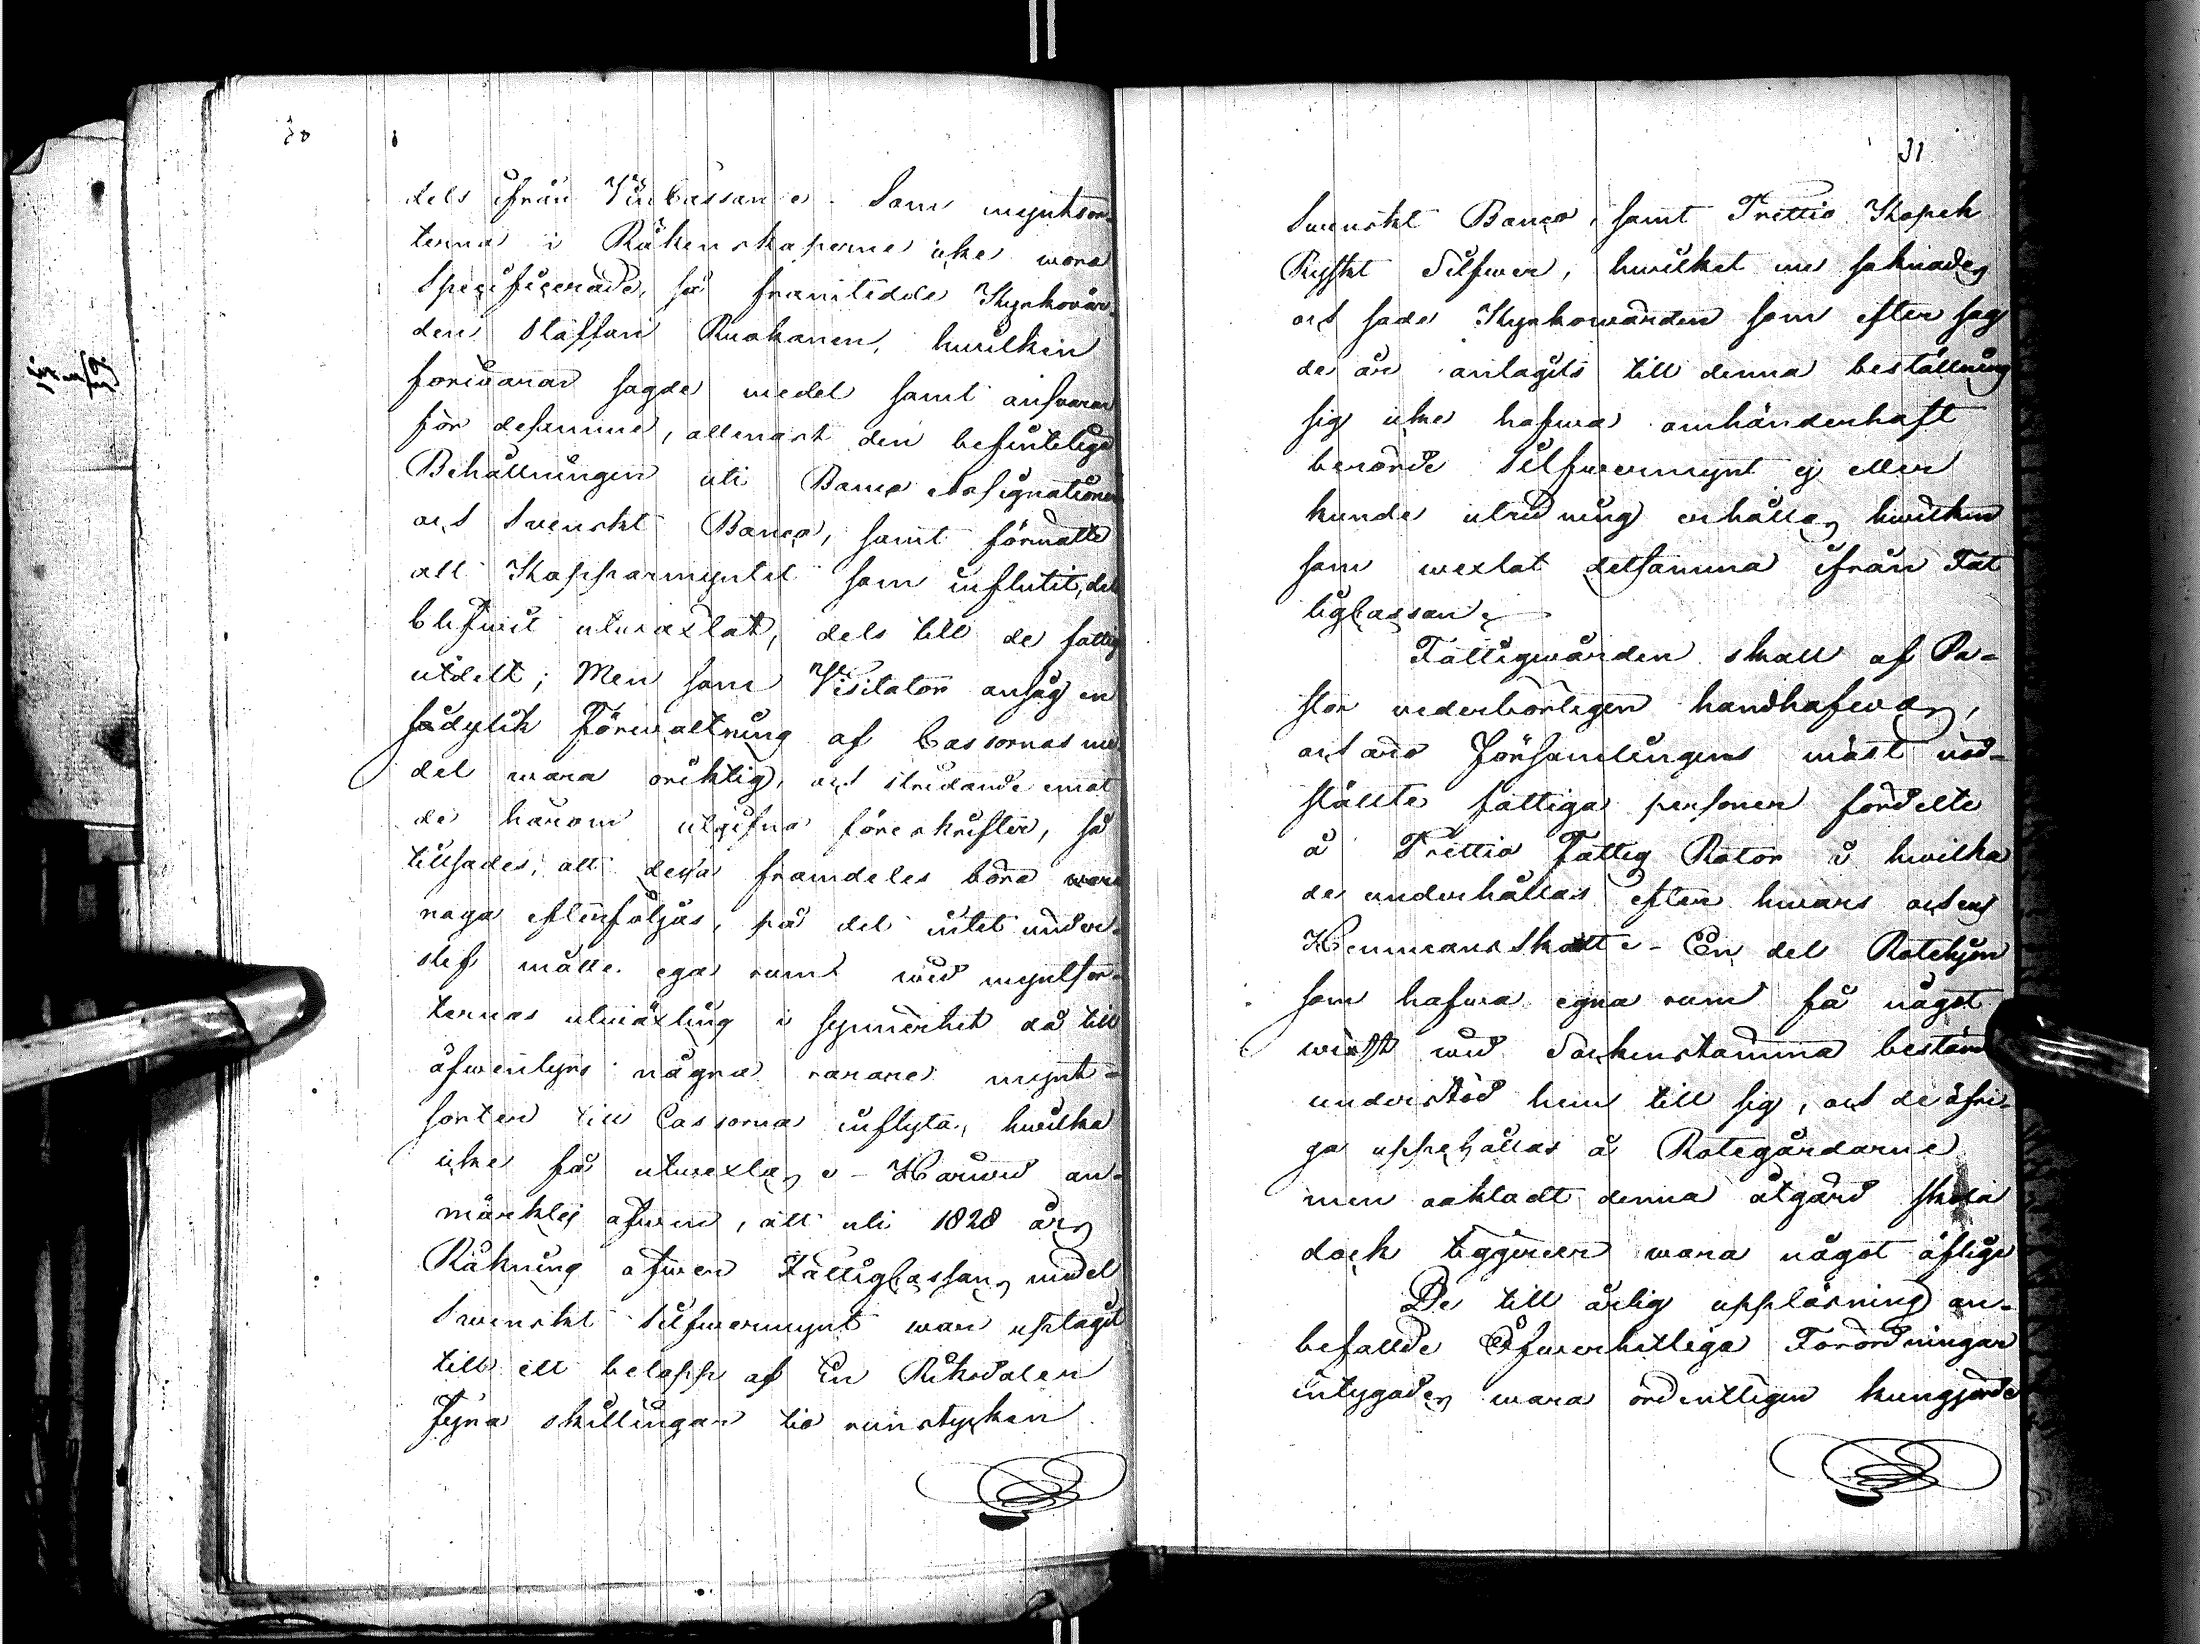 30
dels ifrån VinCassan. Som myntsor-
terna i Räkenskaperne icke wora
Specificerade, så framtedde Kyrkovär-
den Staffan Ruokanen, hwilken
förvarar sagde medel samt answarar
för desamme, allenast den befintelige
Behållningen uti Banco Assignationer
och Svenskt Banco, samt förmälte
att Kopparmyntet som influtit, dels
blifwit utwäxlat, dels till de fattige
utdelt; Men som Visitator ansåg en
sådylik Förwaltning af Cassornas me-
del wara oriktig, och stridande emot
de härom utgifna föreskrifter, så
tillsades, att dessa framdeles böra
noga efterföljas, på det intet under-
slef måtte ega rum wid myntsor-
ternas utwäxling i synnerhet då till
äfwentyrs någre rarare mynt-
sorter till Cassorna inflyta, hwilka
icke få utwexlas - Härwid an-
märktes äfwen, att uti 1828 års
Räkning öfwer FattigCassans medel
Swenskt Silfwermynt war uptaget
till ett belopp af En Riksdaler
Tjugu skillingar tio runstycken
31
Swenskt Banco, samt Trettio Kopek
Ryskt Silfwer, hwilket nu saknades
och sade Kyrkowärden som efter sag
de år antagits till denna beställning
sig icke hafwa omhänderhaft
berörde Silfwermynt ej eller
kunde utredning erhållas hwilken
som wexlat detsamma ifrån Fat
tigCassan.
Fattigwården skall af Pa-
stor wederbörligen handhafwas,
och äro Församlingens mäst nöd-
ställte fattiga personer fördelte
å Trettio Fattig Rotor i hwilka
de underhållas efter hwars och ens
Hemmans Skatt - En del Rotehjon
som hafwa egna rum få något
wisst wid Sockenstämma bestämt
understöd hem till sig, och de öfri-
ga uppehållas å Rotegårdarne
men oaktadt denna åtgärd skola
dock tiggerier wara något öflige
De till årlig uppläsning an-
befallde Öfwerhetliga Förordningar
intygades wara ordentligen kungjorde